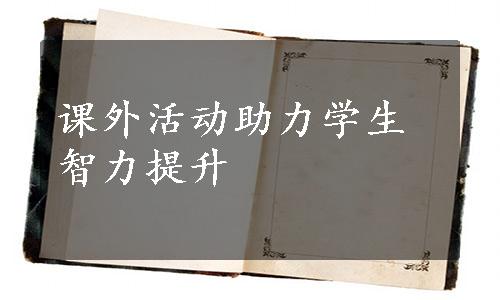 课外活动助力学生
智力提升